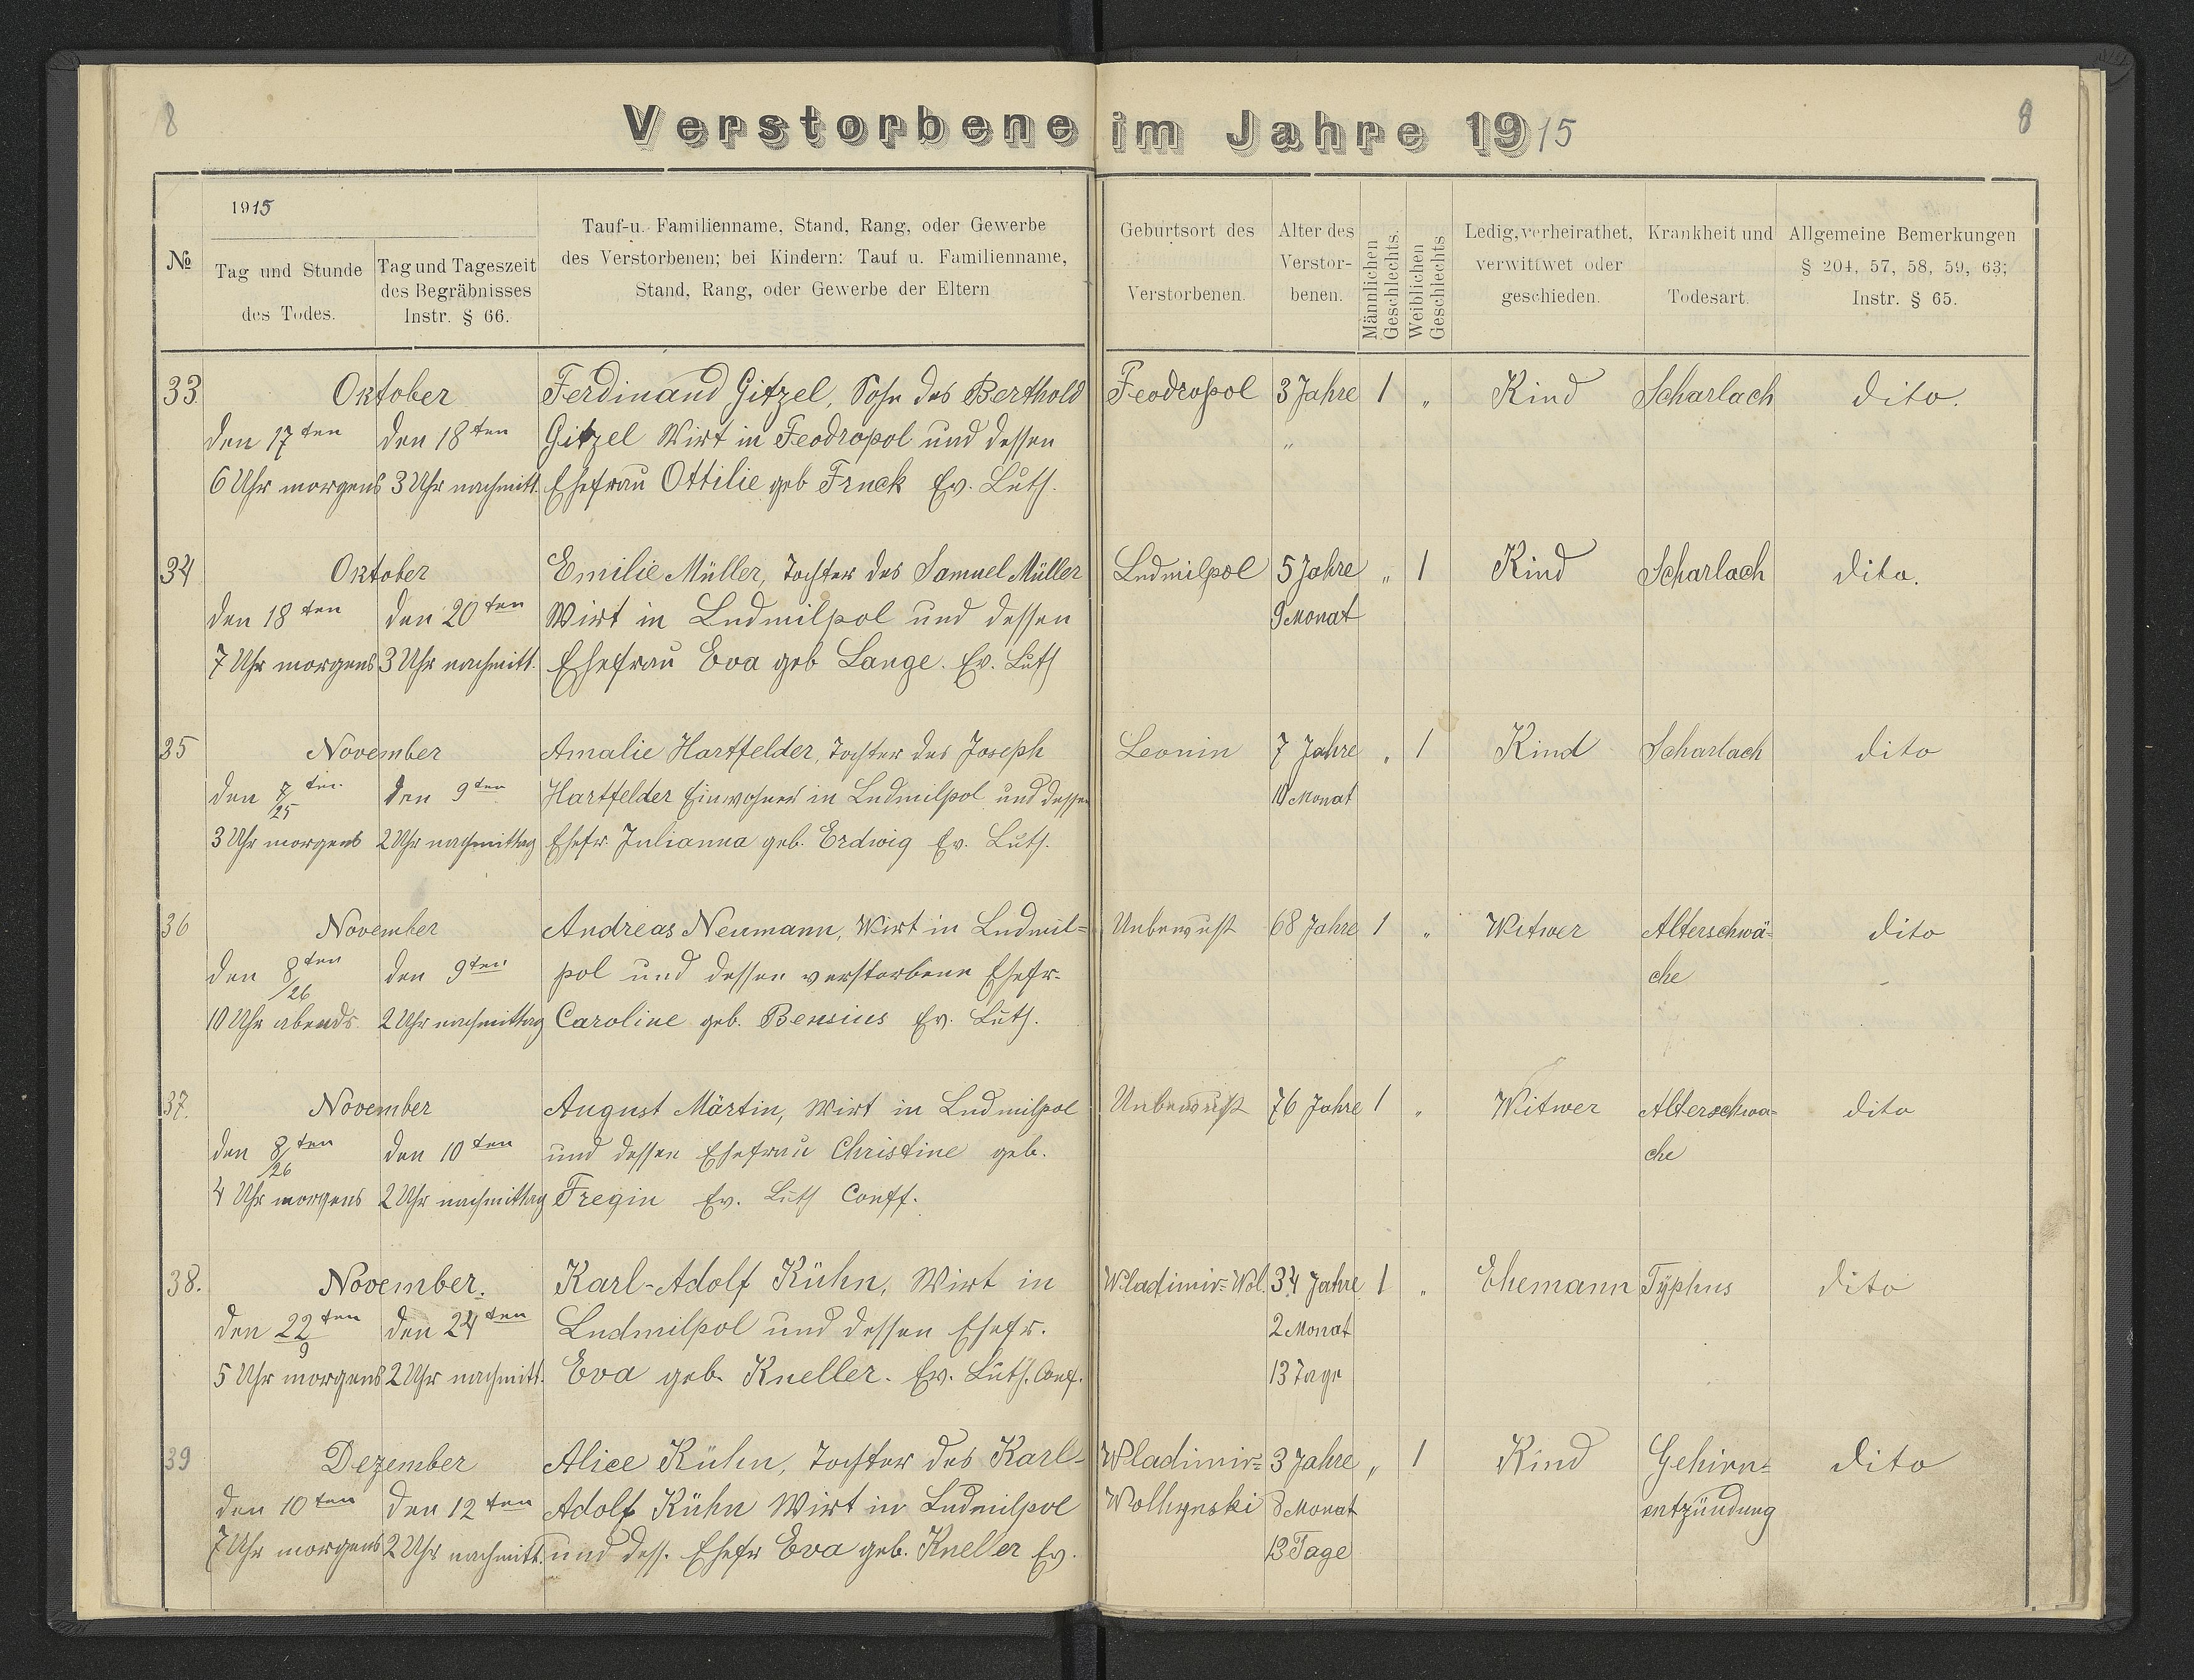 8
8
Verstorbene im Jahre 1915
№
1915
Tag und Stunde
des Todes.
Tag und Tageszeit
des Begräbnisses
Instr. § 66.
Tauf-u. Familienname, Stand, Rang, oder Gewerbe
des Verstorbenen; bei Kindern: Tauf u. Familienname,
Stand, Rang, oder Gewerbe der Eltern
Geburtsort des
Verstorbenen.
Alter des
Verstor-
benen.
Männlichen
Geschlechts.
Weiblichen
Geschlechts
Ledig, verheirathet,
verwittwet oder
geschieden.
Krankheit und
Todesart.
Allgemeine Bemerkungen
§ 204, 57, 58, 59, 63;
Instr. § 65.
33 Oktober Ferdinand Gitzel, Sohn des Berthold Feodropol 3 Jahre 1 „ Kind Scharlach dito.
den 17 ten den 18 ten Gitzel Wirt in Feodropol und dessen „
6 Uhr morgens 3 Uhr nachmitt. Ehefrau Ottilie geb Ev. Luth.
34 Oktober Emilie Müller, Tochter des Samuel Müller Ludmilpol 5 Jahre „ 1 Kind Scharlach dito.
den 18 ten den 20 ten Wirt in Ludmilpol und dessen 9 Monat
7 Uhr morgens 3 Uhr nachmitt. Ehefrau Eva geb Lange. Ev. Luth
35 November Amalie Hartfelder, Tochter des Joseph Leonin 7 Jahre „ 1 Kind Scharlach dito
den 7/25 ten den 9 ten Hartfelder Einwohner in Ludmilpol und dessen 10 Monat
3 Uhr morgens 2 Uhr nachmittag Ehefr. Julianna geb. Erdwig Ev. Luth.
36 November Andreas Neumann, Wirt in Ludmil= Unbewußt 68 Jahre 1 „ Witwer Alterschwä= dito
den 8/26 ten den 9 ten pol und dessen verstorbene Ehefr. che
10 Uhr abends. 2 Uhr nachmittag Caroline geb. Bensius Ev. Luth.
37. November August Märtin, Wirt in Ludmilpol Unbewußt 76 Jahre 1 „ Witwer Alterschwa= dito
den 8/26 ten den 10 ten und dessen Ehefrau Christine geb. che
4 Uhr morgens 2 Uhr nachmittag Fregin Ev. Luth Conff.
38. November. Karl-Adolf Kühn, Wirt in Wladimir=Wol. 34 Jahre 1 „ Ehemann Typhus dito
den 22/9 ten den 24 ten Ludmilpol und dessen Ehefr. 2 Monat
5 Uhr morgens 2 Uhr nachmitt. Eva geb. Kneller. Ev. Luth. Conf. 13 Tage
39 Dezember Alice Kühn, Tochter des Karl- Wladimir= 3 Jahre „ 1 Kind Gehirn= dito
den 10 ten den 12 ten Adolf Kühn Wirt in Ludmilpol Wolhynski 8 Monat entzündung
7 Uhr morgens 2 Uhr nachmitt. und dess. Ehefr Eva geb. Kneller Ev. 13 Tage